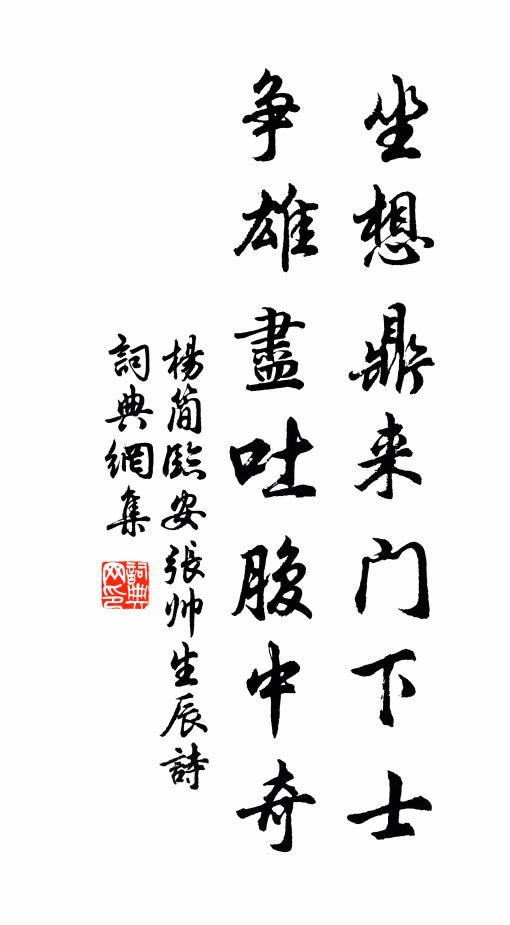 坐想鼎来门下士
争雄盡吐腹中奇
楊简臨安張帅生辰詩
詞典網集
詞典网印